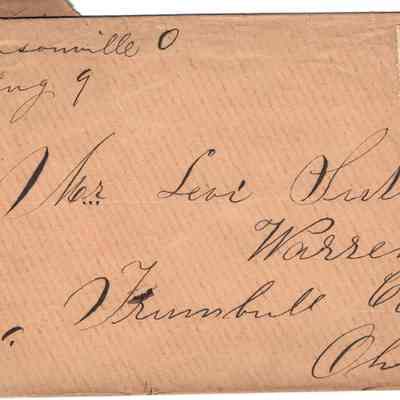 sonville O
Aug 9
Mr Levi Sut
Warre
Trumbull Co
Oh